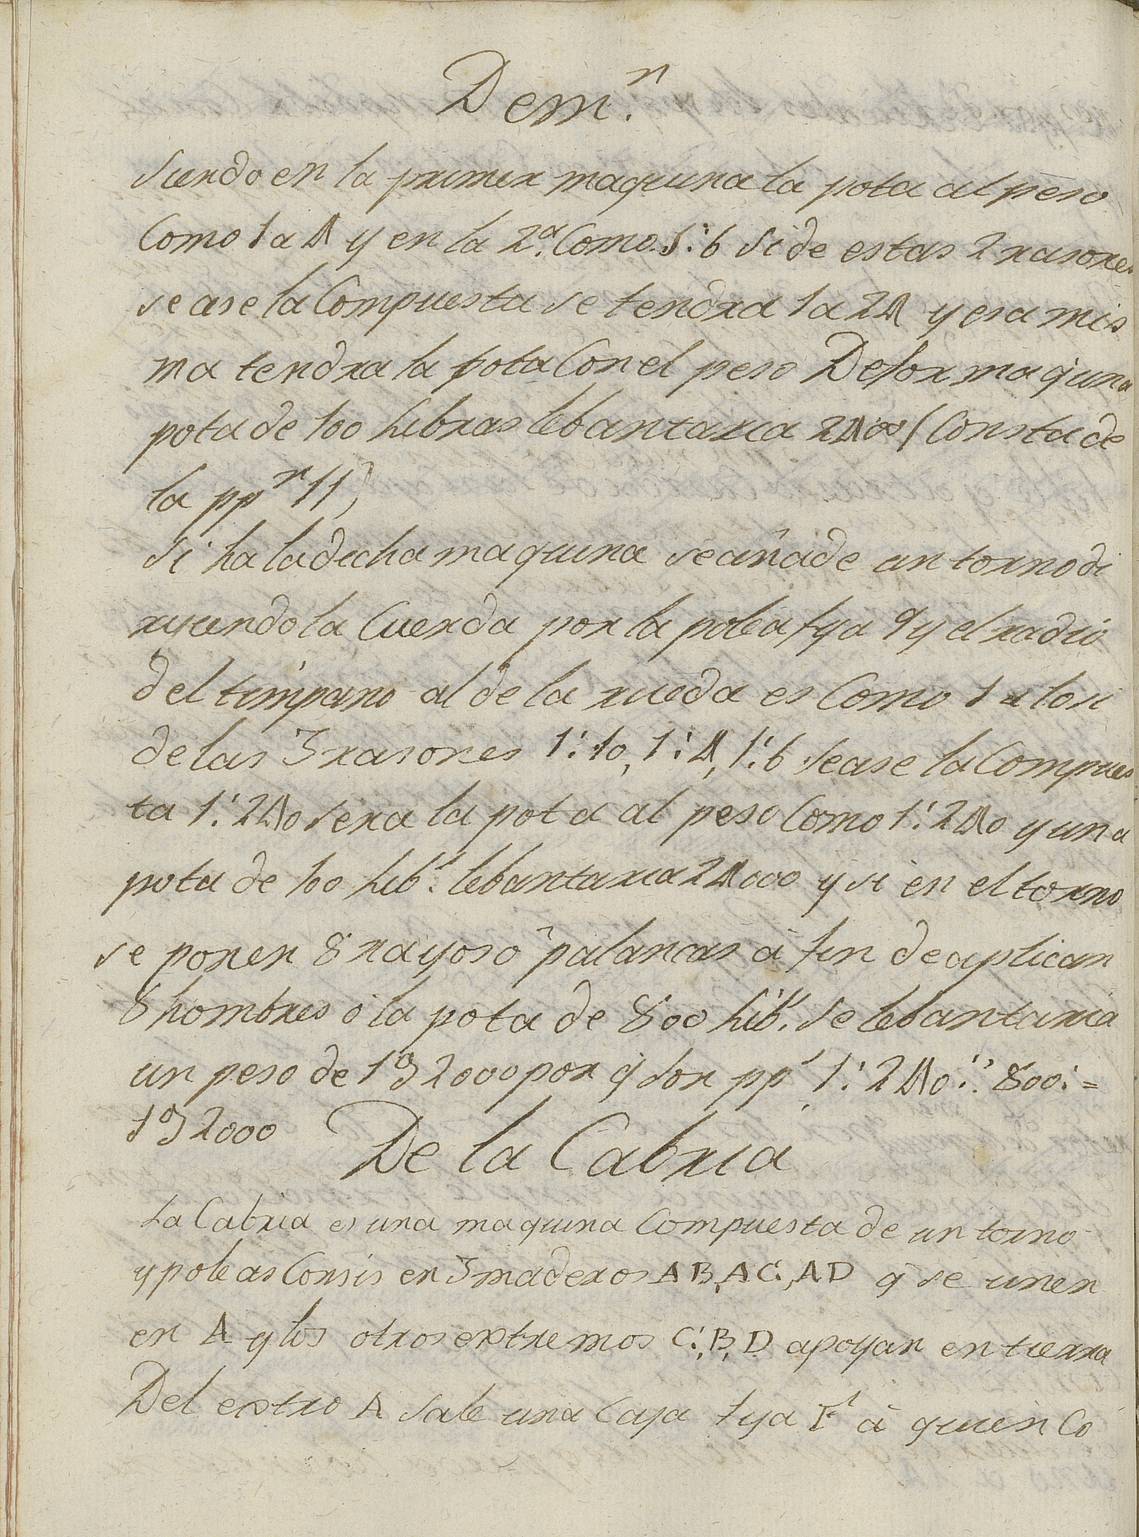 Dem.n
siendo en la primer maquina la pota al peso
como 1 a 4 y en la 2.a como 1:6 si de estas 2 rasones
se ase la compuesta se tendra 1 a 24 y esa mis
ma tendra la pota con el peso De por maquina
pota de 100 libras lebantaria 2400 (consta de
la pp.n 11)
Si ha la dicha maquina se añade un torno di
rijiendo la cuerda por la polea fija 9 y el radio
del timpano al de la rueda es como 1 a 10 si
de las 3 rasones 1:10, 1:4, 1:6 se ase la compues
ta 1:240 sera la pota al peso como 1:240 y una
pota de 100 lib.s lebantaria 24000 y si en el torno
se ponen 8 rayos ô palancas â fin de aplicar
8 hombres o la pota de 800 lib.s se lebantaria
un peso de 192000 por q son pp.s 1:240::800:=
192000
De la Cabria
La Cabria es una maquina compuesta de un torno
y poleas consis en 3 maderos AB, AC, AD q se unen
en A y los otros extremos C, B, D apoyan en tierra
Del extro A sale una caja fija F â quien co